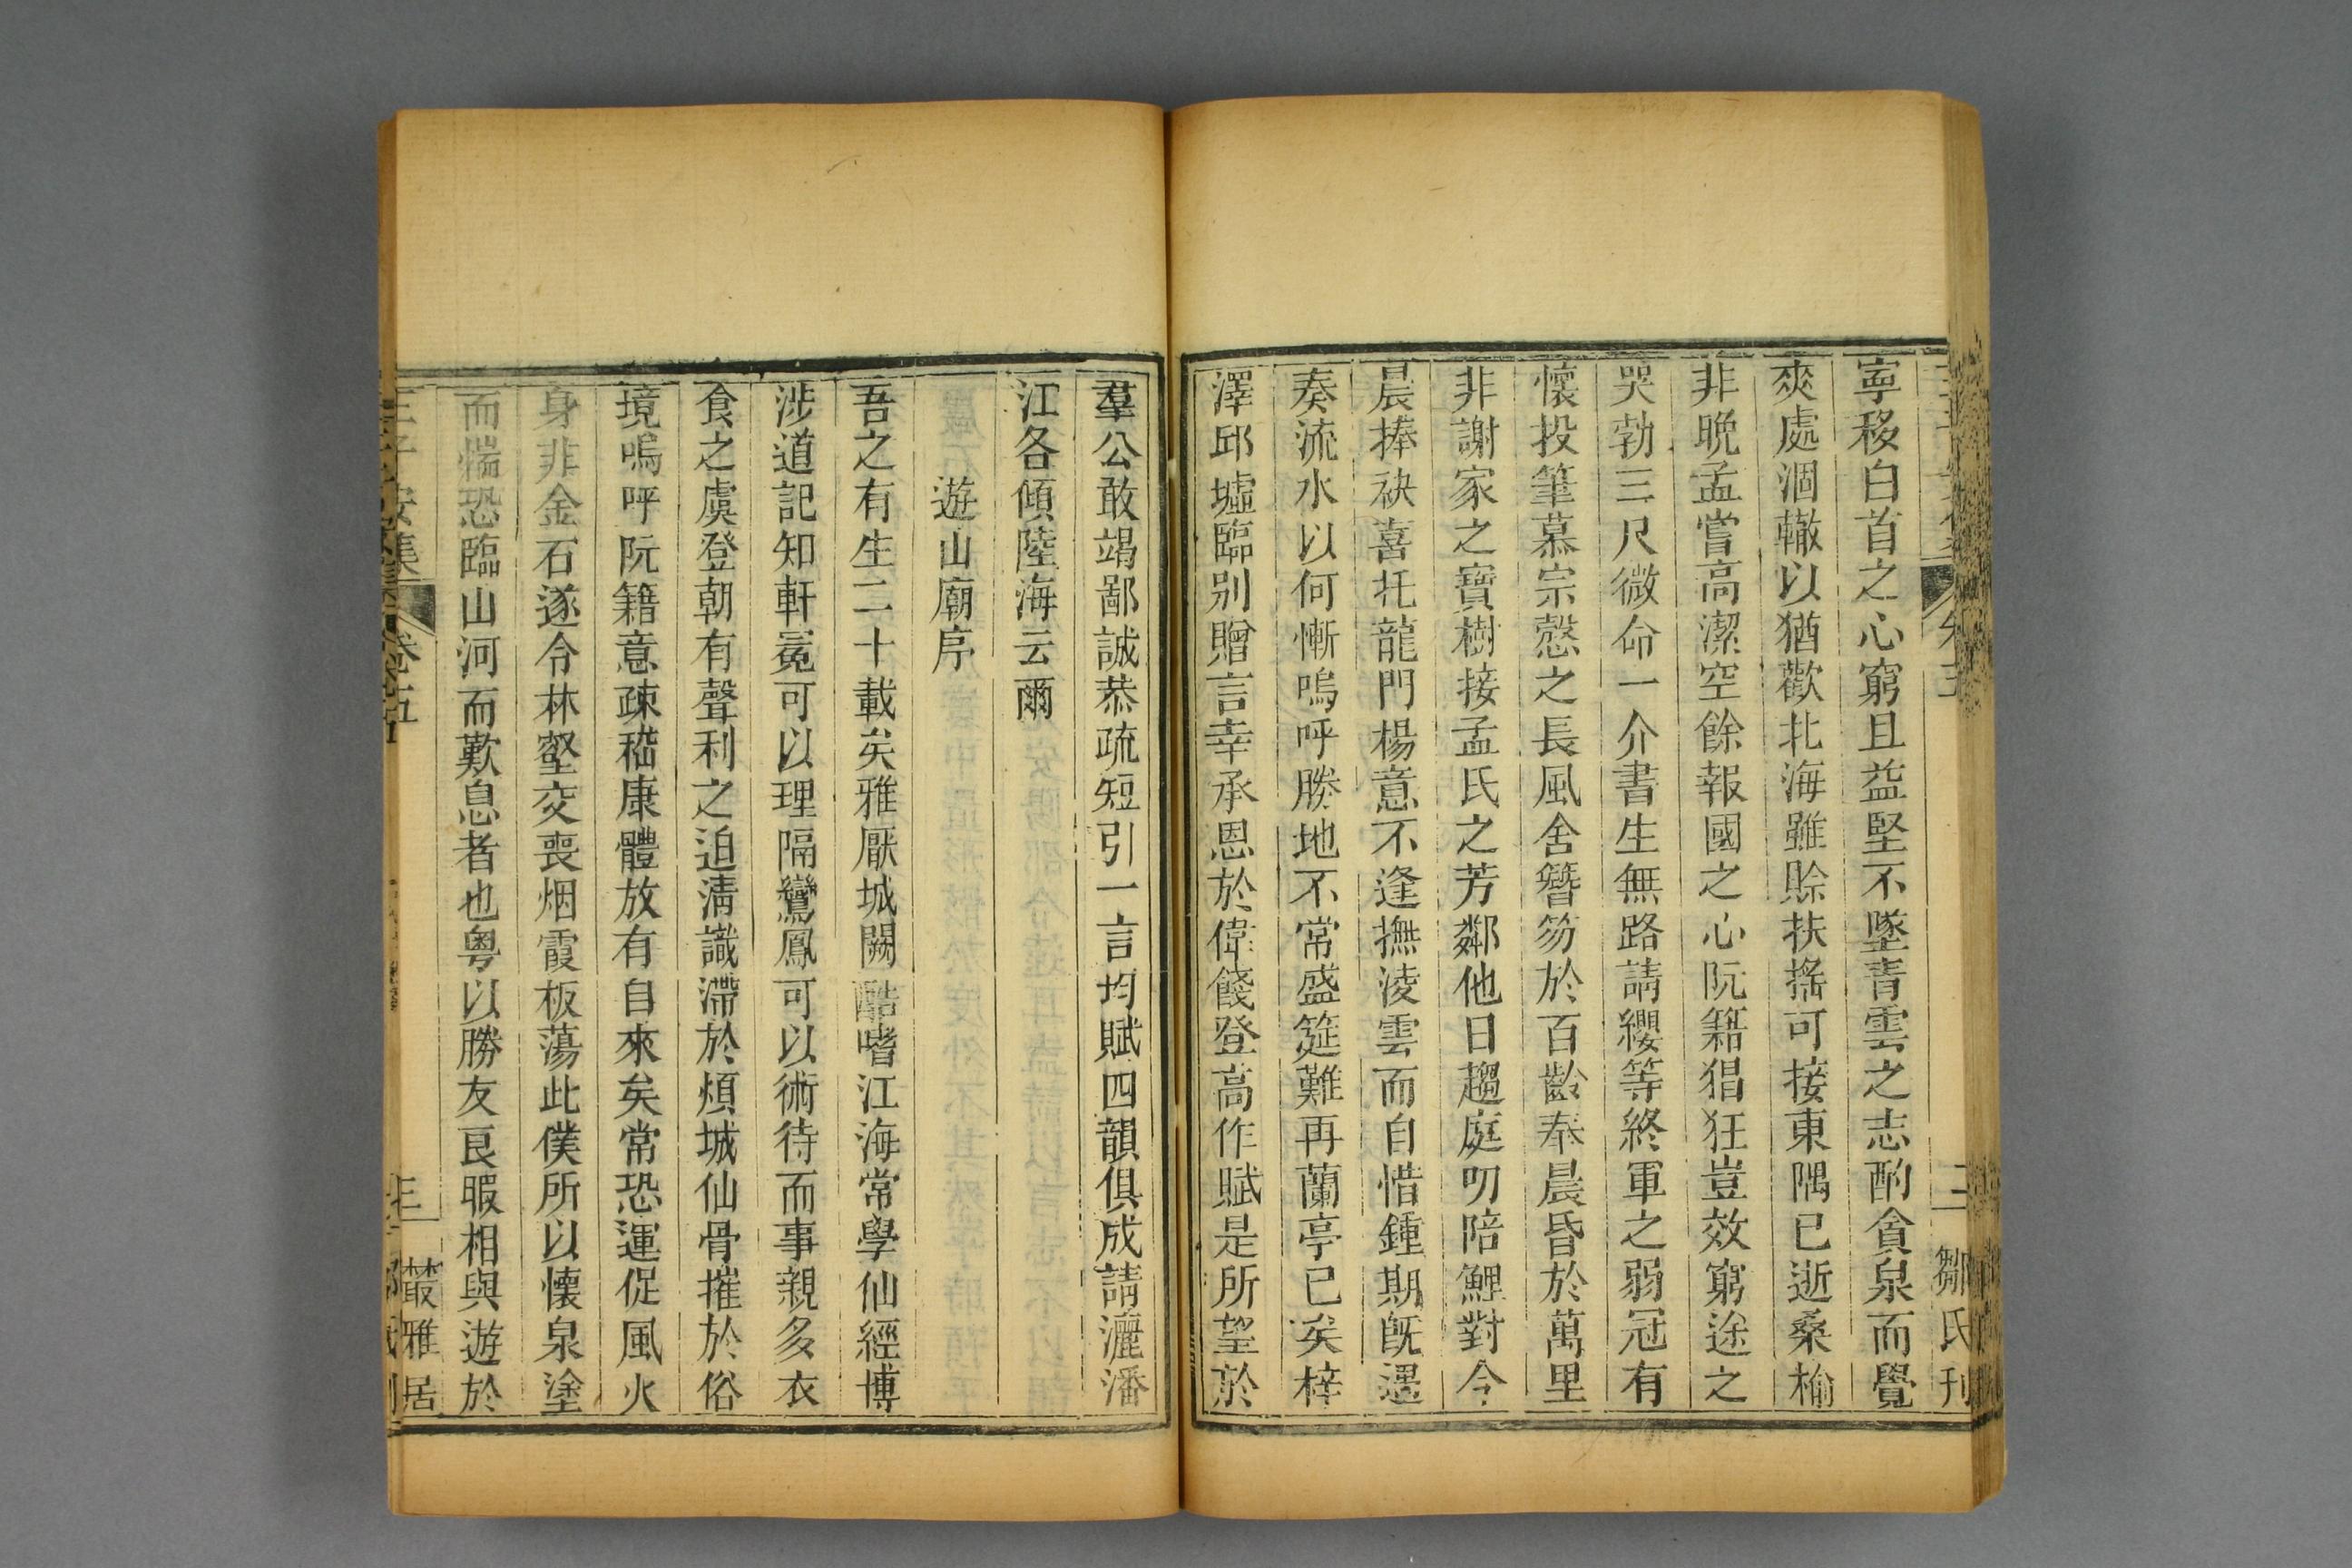 寧移白首之心窮且益堅不墜青雲之志酌貪泉而覺
爽處涸轍以猶歡北海雖賒扶搖可接東隅已逝桑榆
非晚孟嘗高潔空餘報國之心阮籍猖狂豈效窮途之
哭勃三尺微命一介書生無路請纓等終軍之弱冠有
懷投筆慕宗慤之長風舍簪笏於百齡奉晨昏於萬里
非謝家之寶樹接孟氏之芳鄰他日趨庭叨陪鯉對今
晨捧袂喜托龍門楊意不逢撫淩雲而自惜鍾期既遇
奏流水以何慚嗚呼勝地不常盛筵難再蘭亭已矣梓
澤邱墟臨別贈言幸承恩於偉餞登高作賦是所望於
二 鄒氏刊
羣公敢竭鄙誠恭疏短引一言均賦四韻俱成請灑潘
江各傾陸海云爾
遊山廟序
吾之有生二十載矣雅厭城闕酷嗜江海常學仙經博
涉道記知軒冕可以理隔鸞鳳可以術待而事親多衣
食之虞登朝有聲利之迫清識滯於煩城仙骨摧於俗
境嗚呼阮籍意疎嵇康體放有自來矣常恐運促風火
身非金石遂令林壑交喪烟霞板蕩此僕所以懷泉塗
而惴恐臨山河而歎息者也粵以勝友良暇相與遊於
王子安集 卷五 三 叢雅居